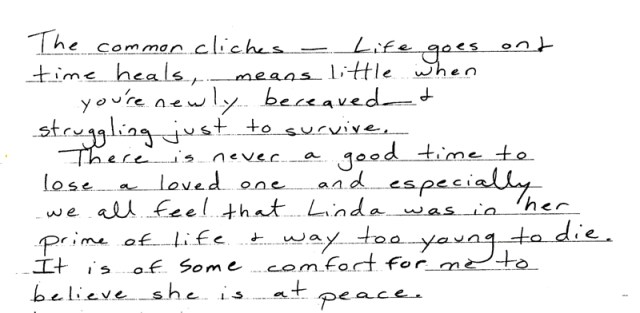 The common cliches — Life goes on &
time heals, means little when
you're newly bereaved &
struggling just to survive.
There is never a good time to
lose a loved one and especially
we all feel that Linda was in her
prime of life & way too young to die.
It is of some comfort for me to
believe she is at peace.